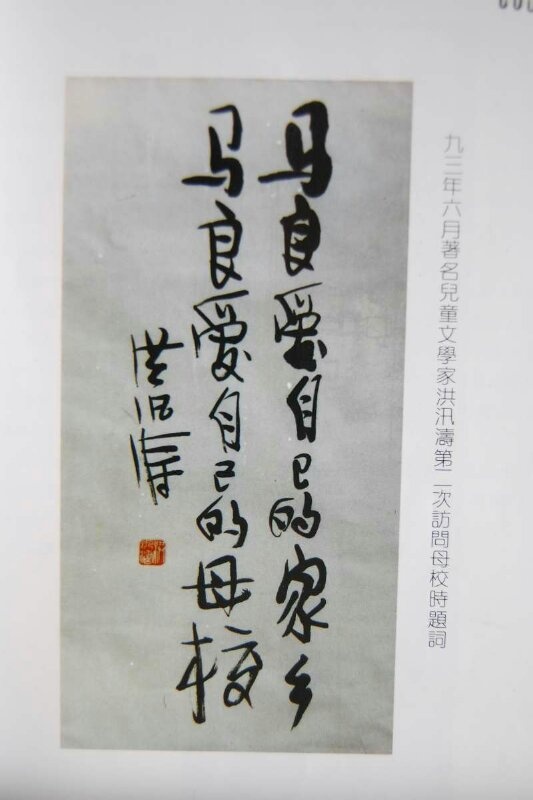 九三年六月著名兒童文學家洪汛濤第二次訪問母校時題詞
马良爱自己的家乡
马良爱自己的母校
洪汛涛